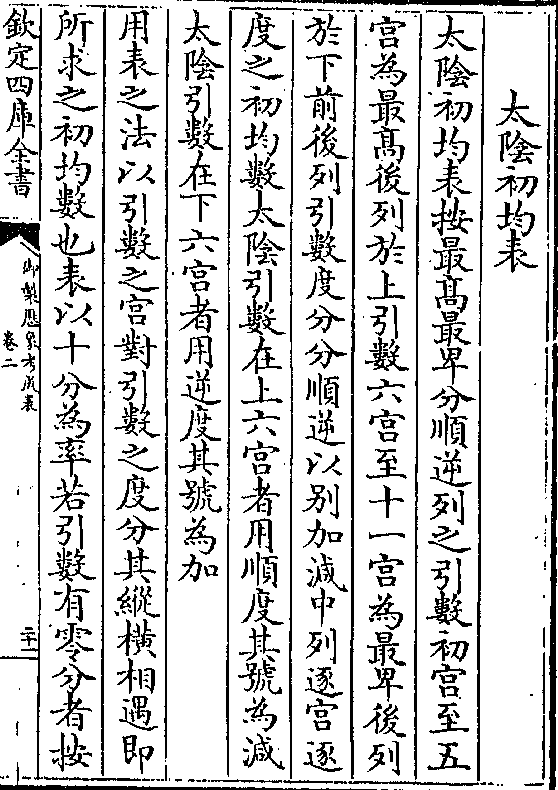 太陰初均表
太陰初均表按最髙最卑分順逆列之引數初宮至五
宮為最髙後列於上引數六宮至十一宮為最卑後列
於下前後列引數度分分順逆以别加減中列逐宮逐
度之初均數太陰引數在上六宮者用順度其號為減
太陰引數在下六宮者用逆度其號為加
用表之法以引數之宮對引數之度分其縱橫相遇即
所求之初均數也表以十分為率若引數有零分者按
欽定四庫全書
御製厯象考成表
卷二
二十一